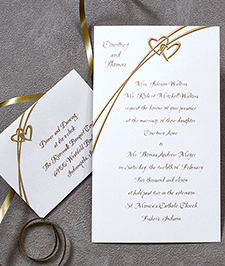 Courtney
and
Thomas
Mrs. Adriann Walters
Mr. Robert Mitchell Walters
request the honour of your presence
at the marriage of their daughter
Courtney Anne
to
Mr. Thomas Andrew Moyer
on Saturday, the twelfth of February
Two thousand and eleven
at half past two in the afternoon
St. Monica's Catholic Church
Fishers, Indiana
Dinner and Dancing
at six o'clock
The Ritzmoth Banquet
Indianapolis,